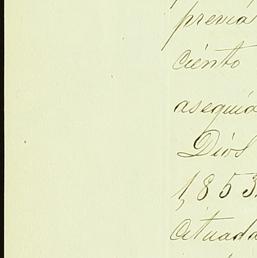 previa
Ciento
asequia
Dios
1,853.
Actuada